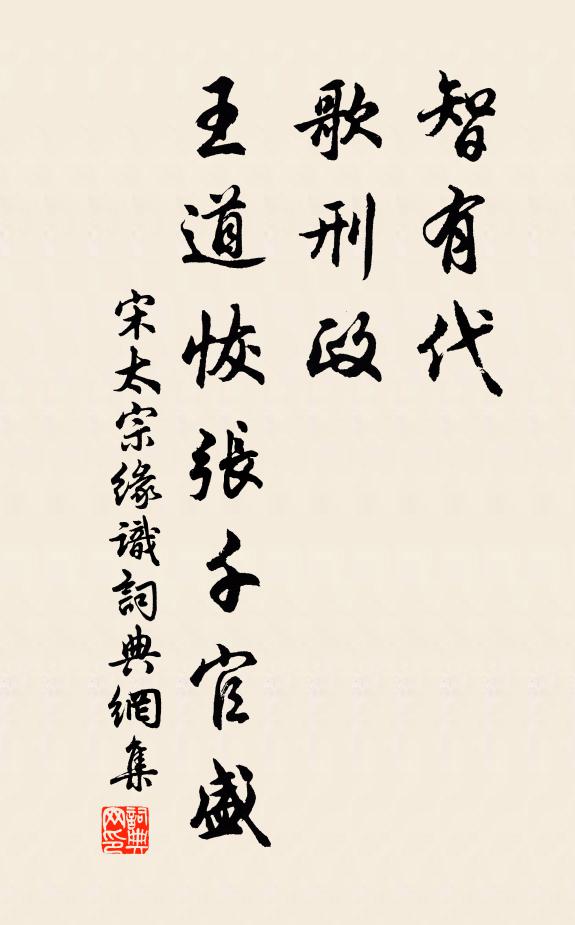 智有代
歌刑政
王道恢張千官盛
宋太宗緣識詞典網集
詞典网印